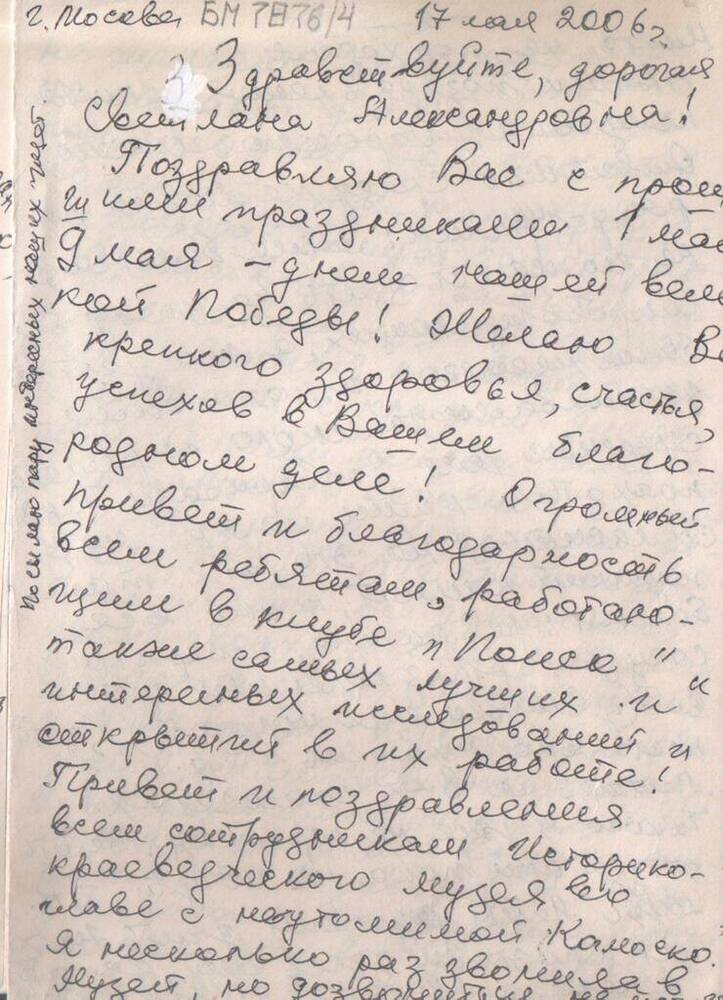 г. Москва БМ 7876/4 17 мая 2006 г.
Здравствуйте, дорогая
Светлана Александровна!
Поздравляю Вас с прош
ими праздниками 1 мая
9 мая – днем нашей вели
кой Победы! Желаю Ва
крепкого здоровья, счастья,
успехов в Вашем благо-
родном деле! Огромный
привет и благодарность
всем ребятам, работаю-
щим в клубе "Поиск"
также самых лучших и
интересных исследований и
открытий в их работе!
Привет и поздравления
всем сотрудникам Историко-
краеведческого музея во
главе с неутомимой
Я несколько раз звонила в
Музей, но
Посылаю пару интересных наших газет.